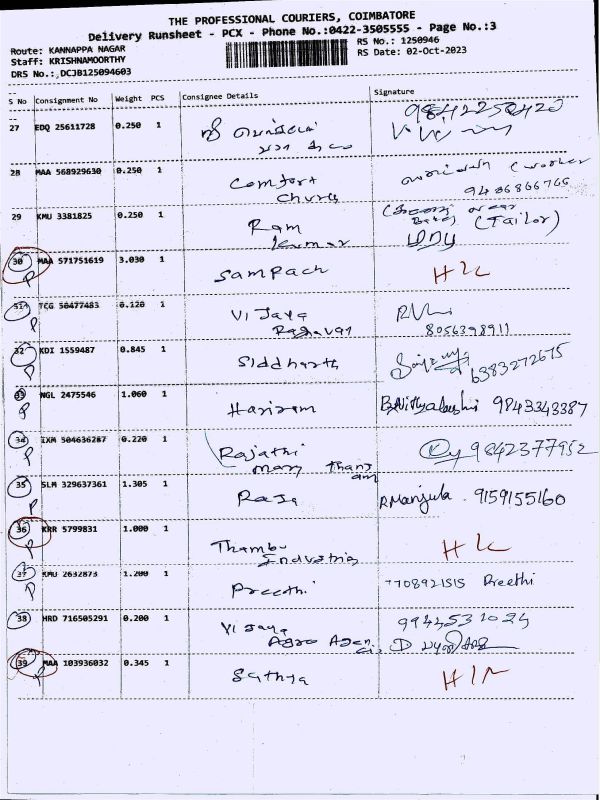 THE PROFESSIONAL COURIERS, COIMBATORE
Delivery Runsheet - PCX - Phone No.:0422-3505555 - Page No.:3
Route: KANNAPPA NAGAR RS No.: 1250946
Staff: KRISHNAMOORTHY RS Date: 02-Oct-2023
DRS No.: DCJB125094603
S No Consignment No Weight PCS Consignee Details Signature
27 EDQ 25611728 0.250 1 9842250420
28 MAA 568929630 0.250 1 Comfort (worker
Churs 9486866766
29 KMU 3381825 0.250 1 Ram (Tailor)
Kumar
30 MAA 571751619 3.030 1 Sampach
P
31 TCG 50477483 0.120 1 Vijaya
P Ragavan 8056398911
32 KDI 1559487 0.845 1 Siddharth 6383272675
P
33 NGL 2475546 1.060 1 Hariram 9843343387
P
34 IXM 504636287 0.220 1 Rajathi 9842377952
P mary thang
am
35 SLM 329637361 1.305 1 Raja R.Manjula 9159155160
P
36 KRR 5799831 1.000 1 Thambu
P Industries
37 KMU 2632873 1.200 1 Preethi 7708921515 Preethi
P
38 HRD 716505291 0.200 1 Vijaya 9944531024
Agro Agen
cis
39 MAA 103936032 0.345 1 Sathya
P